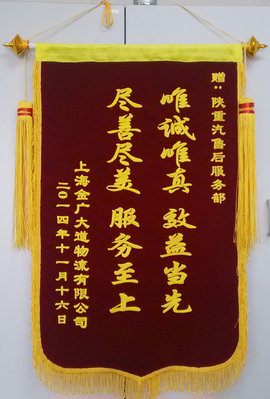 赠：陕重汽售后服务部
唯诚唯真 效益当先
尽善尽美 服务至上
上海金广大道物流有限公司
二〇一四年十一月十六日